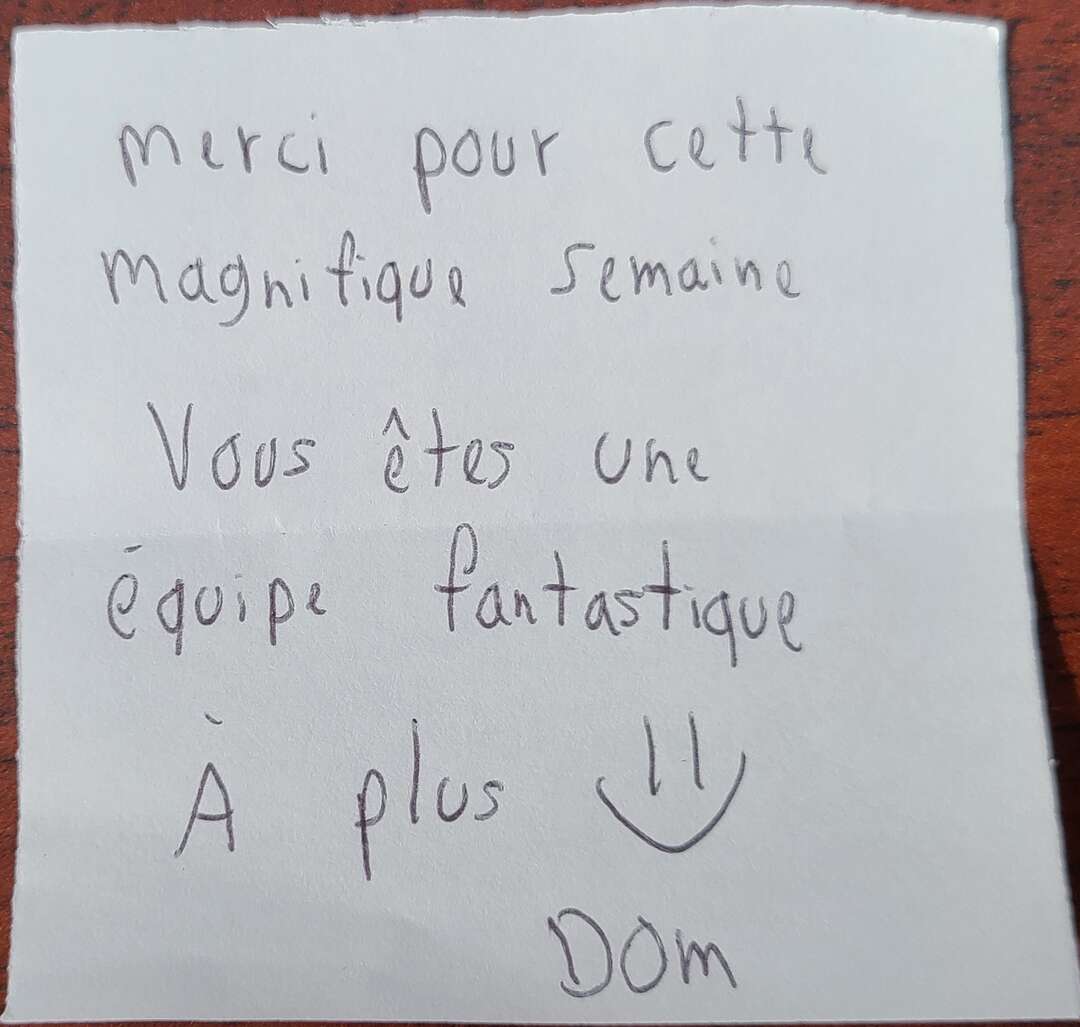 merci pour cette
magnifique semaine
Vous êtes une
équipe fantastique
À plus
DOm